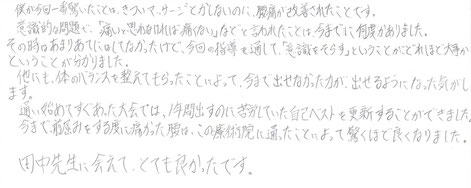 僕が今回一番驚いたことは、きつい、マッサージとかがないのに、腰痛が改善されたことです。
意識的な問題で、「痛いと思わなければ痛くない」などと言われたことは今までに何度かありました。
その時はあまりあてにはしてなかったけど、今回の指導を通して、「意識をそらす」ということがどれほど大事か
ということが分かりました。
他にも、体のバランスを整えてもらったことによって、今まで出せなかった力が、出せるようになった気がし
ます。
通い始めてすぐあった大会では、1年間出すのに苦労していた自己ベストを更新することができました。
今まで前屈みをする度に痛かった腰は、この療術院に通ったことによって驚くほど良くなりました。
田中先生に会えて、とても良かったです。